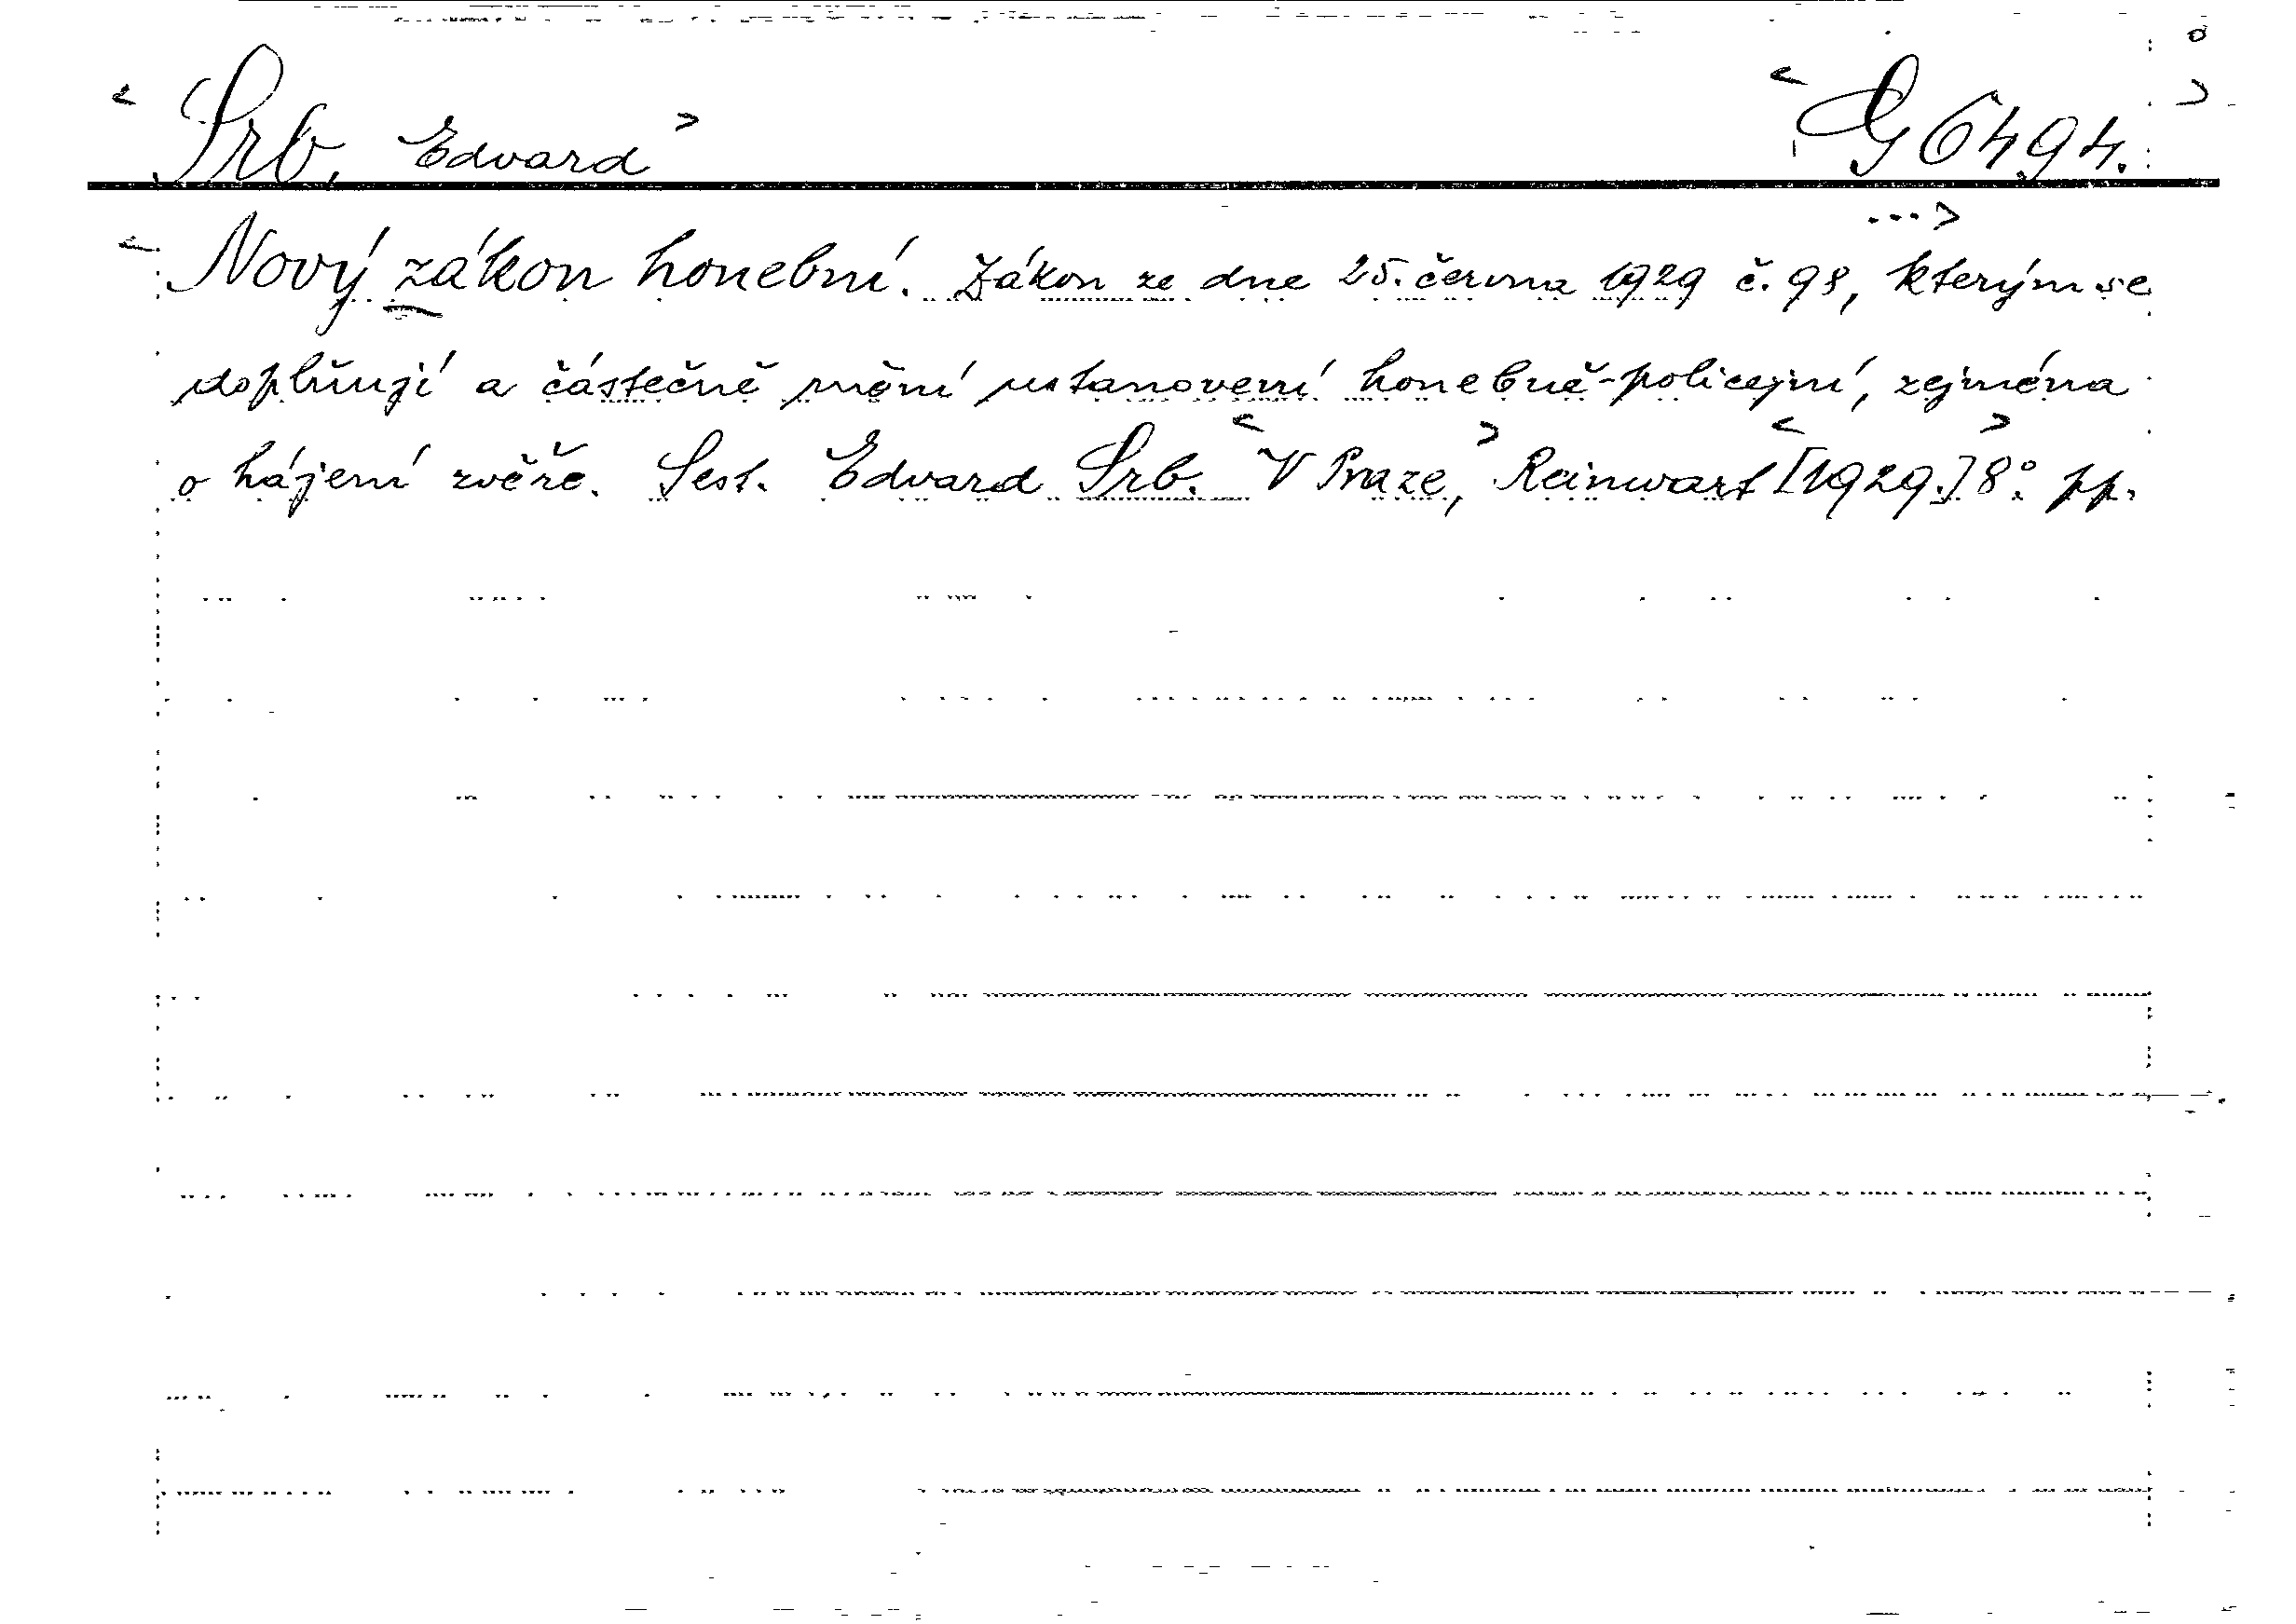 Srb, Edvard G 6494.
Nový zákon honební. Zákon ze dne 25. června 1929 č. 98, kterým se
doplňují a částečně mění ustanovení honebně-policejní, zejména
o hájení zvěře. Sest. Edvard Srb. V Praze, Reinwart [1929.] 8°. pp.